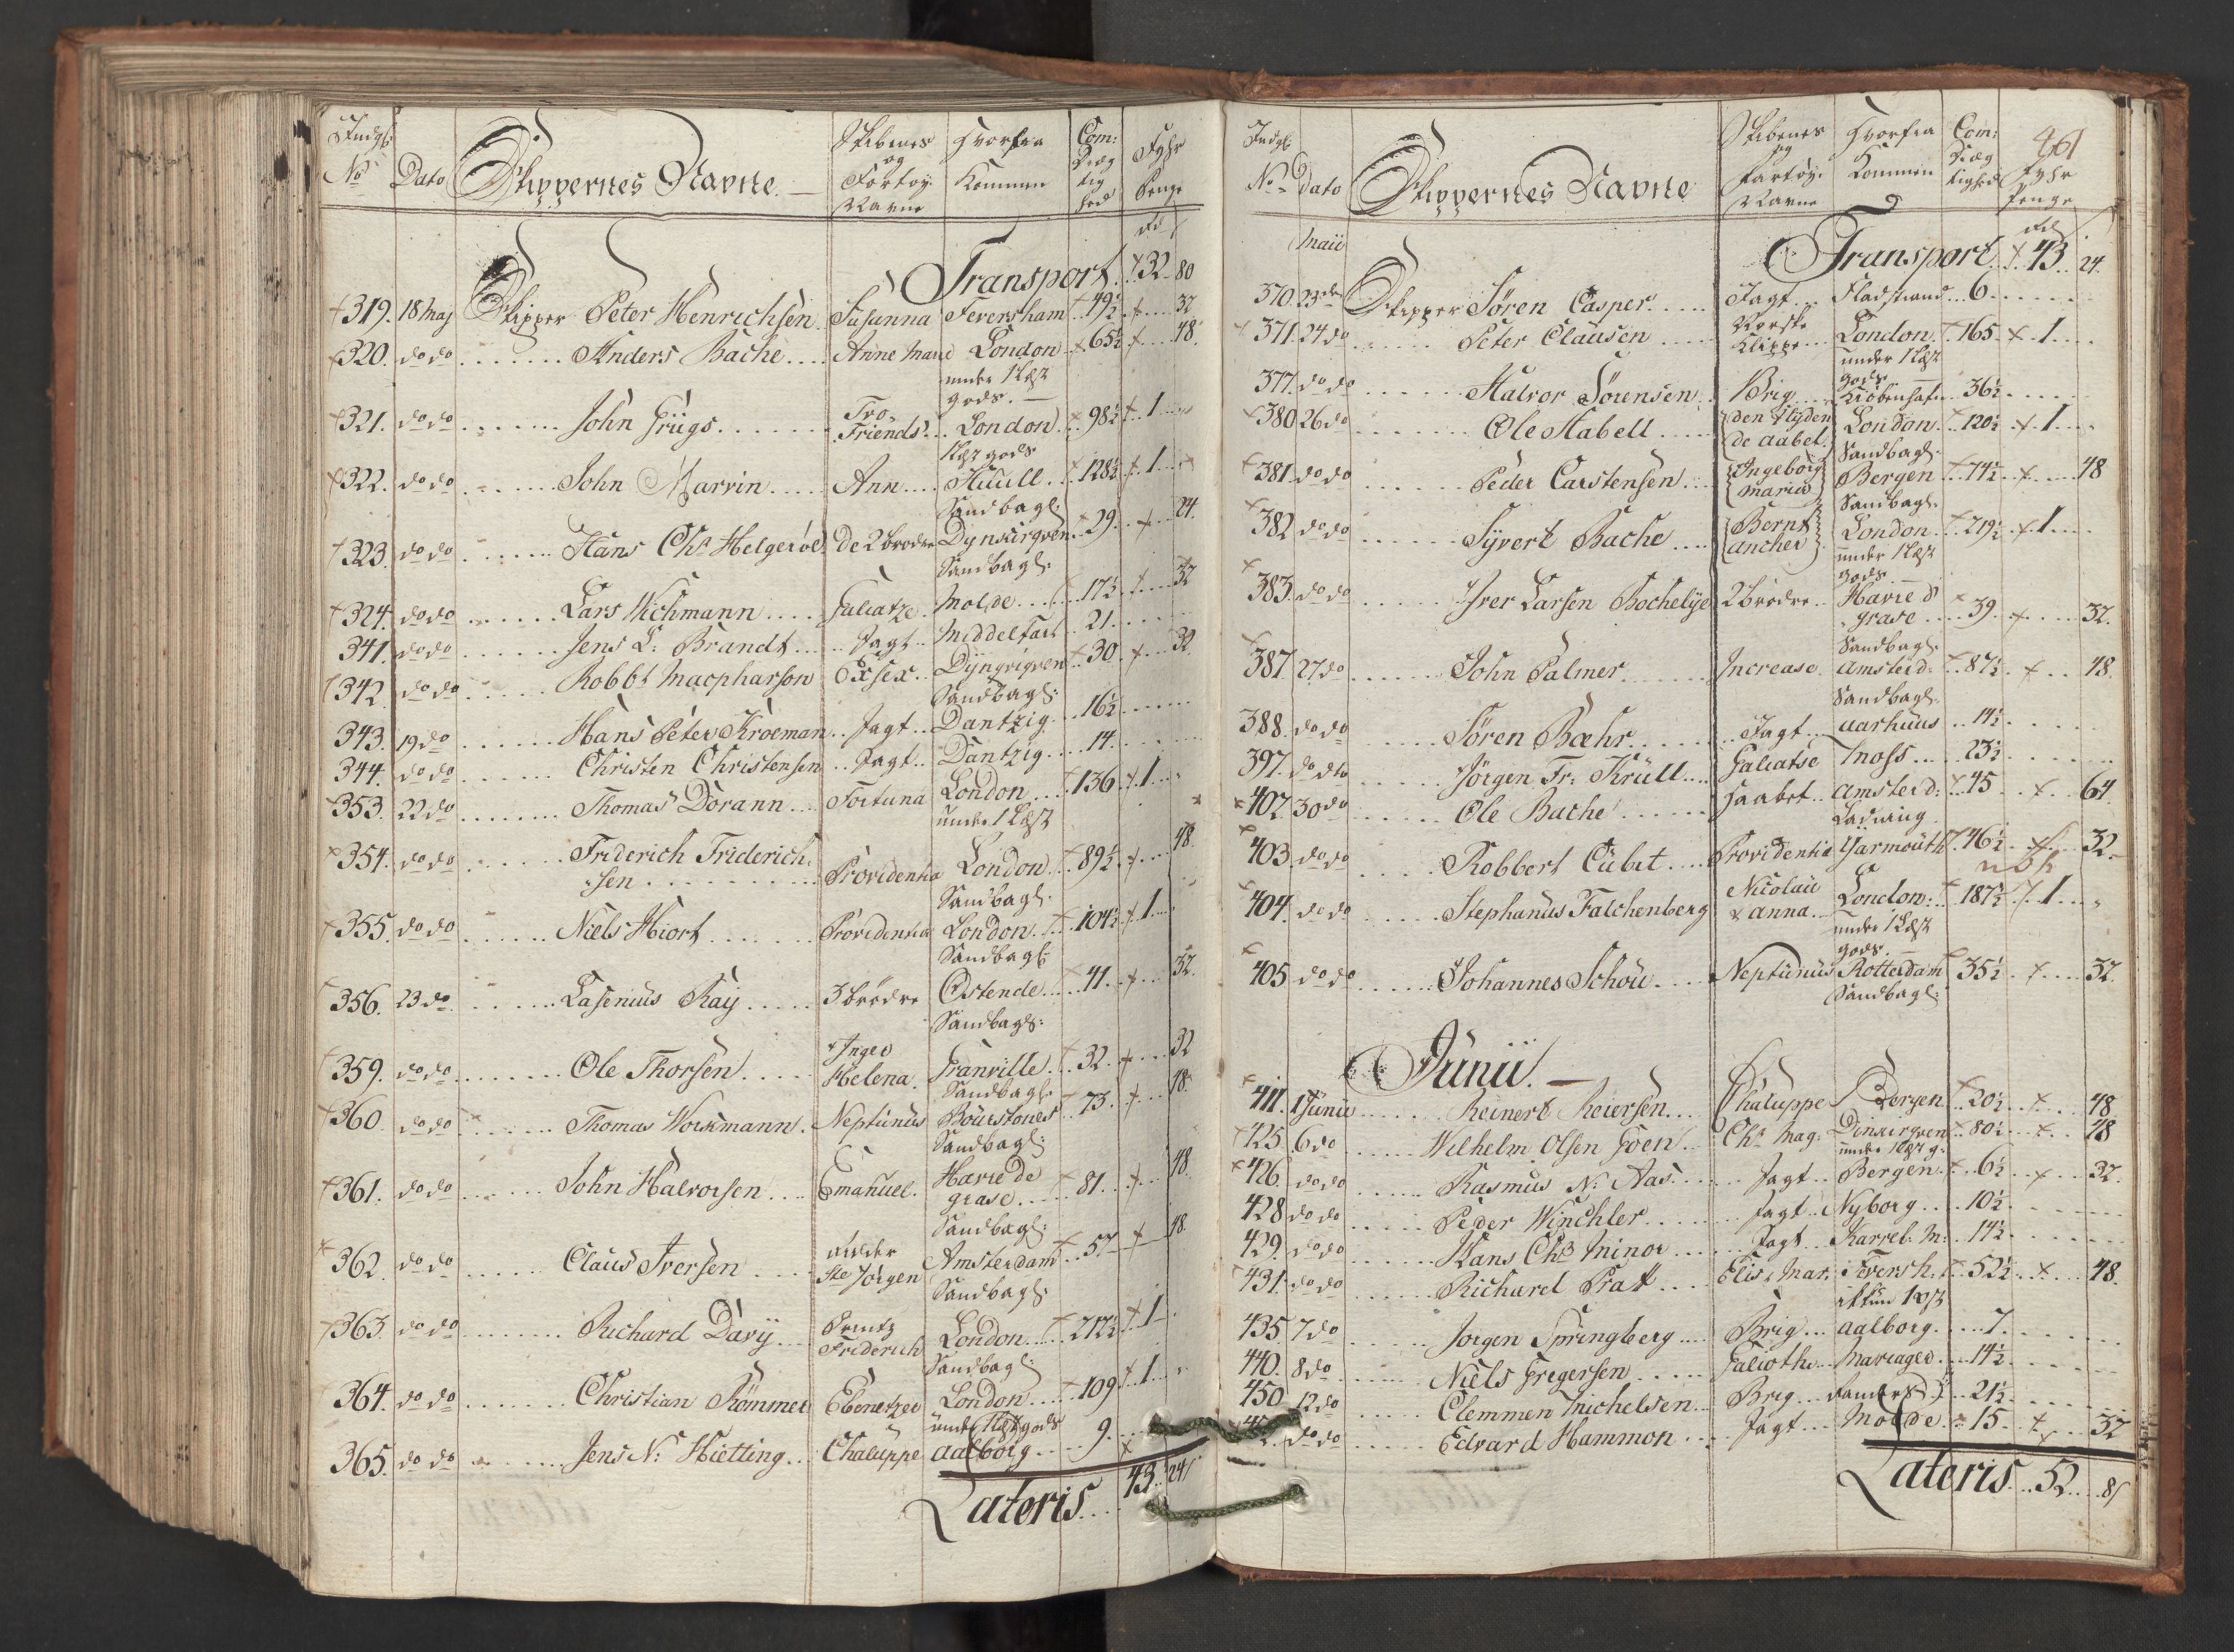 Indg:
No
Dato
Skippernes Navne
Skibenes og Fartøy: Navne
Hvorfra Kommen
Com: Dræg tighed
Fyhr Penge
Rd s
Transport 32 80
319. 18 Maj Skipper Peter Henrichsen Susanna Feversham 49½ 32
320. do do Anders Bache Anne Marie London 65½ 48
under 1 Læst
gods.
321. do do John Grügs Tvo Friends London 98½ 1
1 Læst gods
322. do do John Marvin Ann Huull 128½ 1
Sandbagl:
323. do do Hans Chr Helgerøe De 2 brødre Dynkirqven 29. 24.
Sandbagl:
324. do do Lars Wichmann Galeatze Molde 17½ 32
341. do do Jens L: Brandt Jagt Middelfart 21.
342. do do Robbt Macpharson Essex Dÿnqvirqven 30 32
Sandbagl:
343. 19 do Hans Peter Kroeman Jagt Dantzig 16½
344. do do Christen Christensen Jagt Dantzig 14.
353. 22 do Thomas Dorann Fortuna London 136 1
under 1 Læst
354. do do Friderich Friderich: sen Providentia London 89½ 48
Sandbagl:
355. do do Niels Hiort Providentia London 104½ 1
Sandbagl:
356. 23 do Lasenius Kaÿ 3 brødre Ostende 41 32.
Sandbagl:
359. do do Ole Thorsen Inger Helena Granville 32. 32
Sandbagl:
360. do do Thomas Workmann. Neptunus Bourstones 73. 48.
Sandbagl:
361. do do John Halvorsen Emanuel. Havre de grase 81 48.
Sandbagl:
362. do do Claus Iversen Ste Jørgen Amsterdam 57 48.
Sandbagl:
363. do do Richard Davÿ Printz Friderich London 212½ 1
Sandbagl:
364. do do Christian Rømmer Ebenetzer London 109 1
under 1 Læst gods
365. do do Jens N: Hietting Chaluppe Aalborg 9.
Lateris 43. 24
461
Indg:
No Dato
Skippernes Navne
Skibenes og Fartøy: Navne
Hvorfra Kommen
Com: Dræg tighed
Fyhr Penge
Rd s
Maii
Transport 43 24.
370. 23 do Skipper Søren Casper Jagt Fladstrand 6
371. 24 do Peter Clausen Norske Klippe London 165 1
under 1 Læst
gods
377. do do Halvor Sørensen Brig Kiøbenhafn 36½
380 26 do Ole Stabell den Nyden de Aabel London 120½ 1
Sandbagl:
381. do do Peder Carstensen Ingeborg Maria Bergen 74½ 48
Sandbagl:
382 do do Sÿvert Bache Bernt Ancher London 219½ 1
under 1 Læst
gods
383. do do Iver Larsen Bochelÿe 2 brødre Havre d grase 39. 32.
Sandbagl:
387. 27 do John Palmer Increase Amsterd: 87½ 48.
Sandbagl:
388. do do Søren Bæhr Jagt Aarhuus 14½
397. do do Jørgen Fr: Krüll Galeatse Moss 23½
402. 30 do Ole Bache Haabet Amsterd: 45 64.
Ladning
403. do do Robbert Cubit Providentia Yarmouth 46½ 32
404. do do Stephanus Falchenberg Nicolaii & Anna London 187½ 1
under 1 Læst
gods.
405 do do Johannes Schou Neptunus Rotterdam 35½ 32
Sandbagl:
Junii.
411. 1 Junii Reinert Reiersen Chaluppe Bergen 20½ 48
425. 6 do Wilhelm Olsen Goen Chr Mag: Dinkirqven 80½ 48
under 1 Læst g:
426. do do Rasmus N: Aas Jagt Bergen 6½ 32.
428 do do Peder Winchler Jagt Nyborg 10½
429. do do Hans Chr Minor Jagt Karreb: M: 14½
431. do do Richard Pratt Elis: Mar: Feversh: 52½ 48.
435 7 do Jorgen Springberg Brig Aalborg 7.
440. 8 do Niels Gregersen Galioth Mariager 14½
450 12 do Clemmen Michelsen Brig Randers 21½
do do Edvard Hammon Jagt Molde 15 32
Lateris 52 8